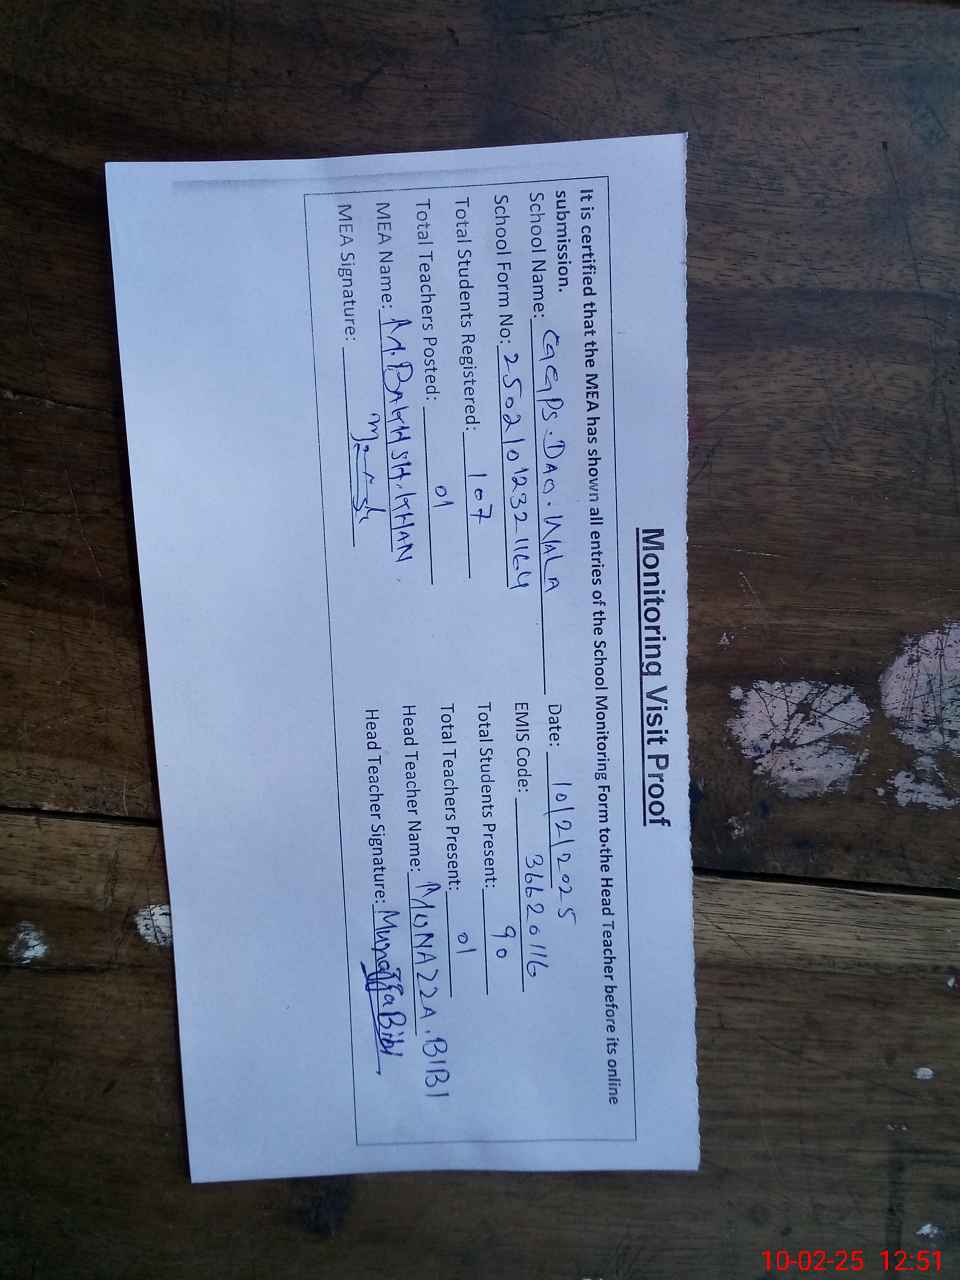 Monitoring Visit Proof
It is certified that the MEA has shown all entries of the School Monitoring Form to the Head Teacher before its online
submission.
School Name: GGPS. DAO. WALA Date: 10/2/2025
School Form No: 25021012321164 EMIS Code: 36620116
Total Students Registered: 107 Total Students Present: 90
Total Teachers Posted: 01 Total Teachers Present: 01
MEA Name: M. BAKHSH. KHAN Head Teacher Name: MUNAZZA. BIBI
MEA Signature: Head Teacher Signature: Munazza Bibi
10-02-25 12:51